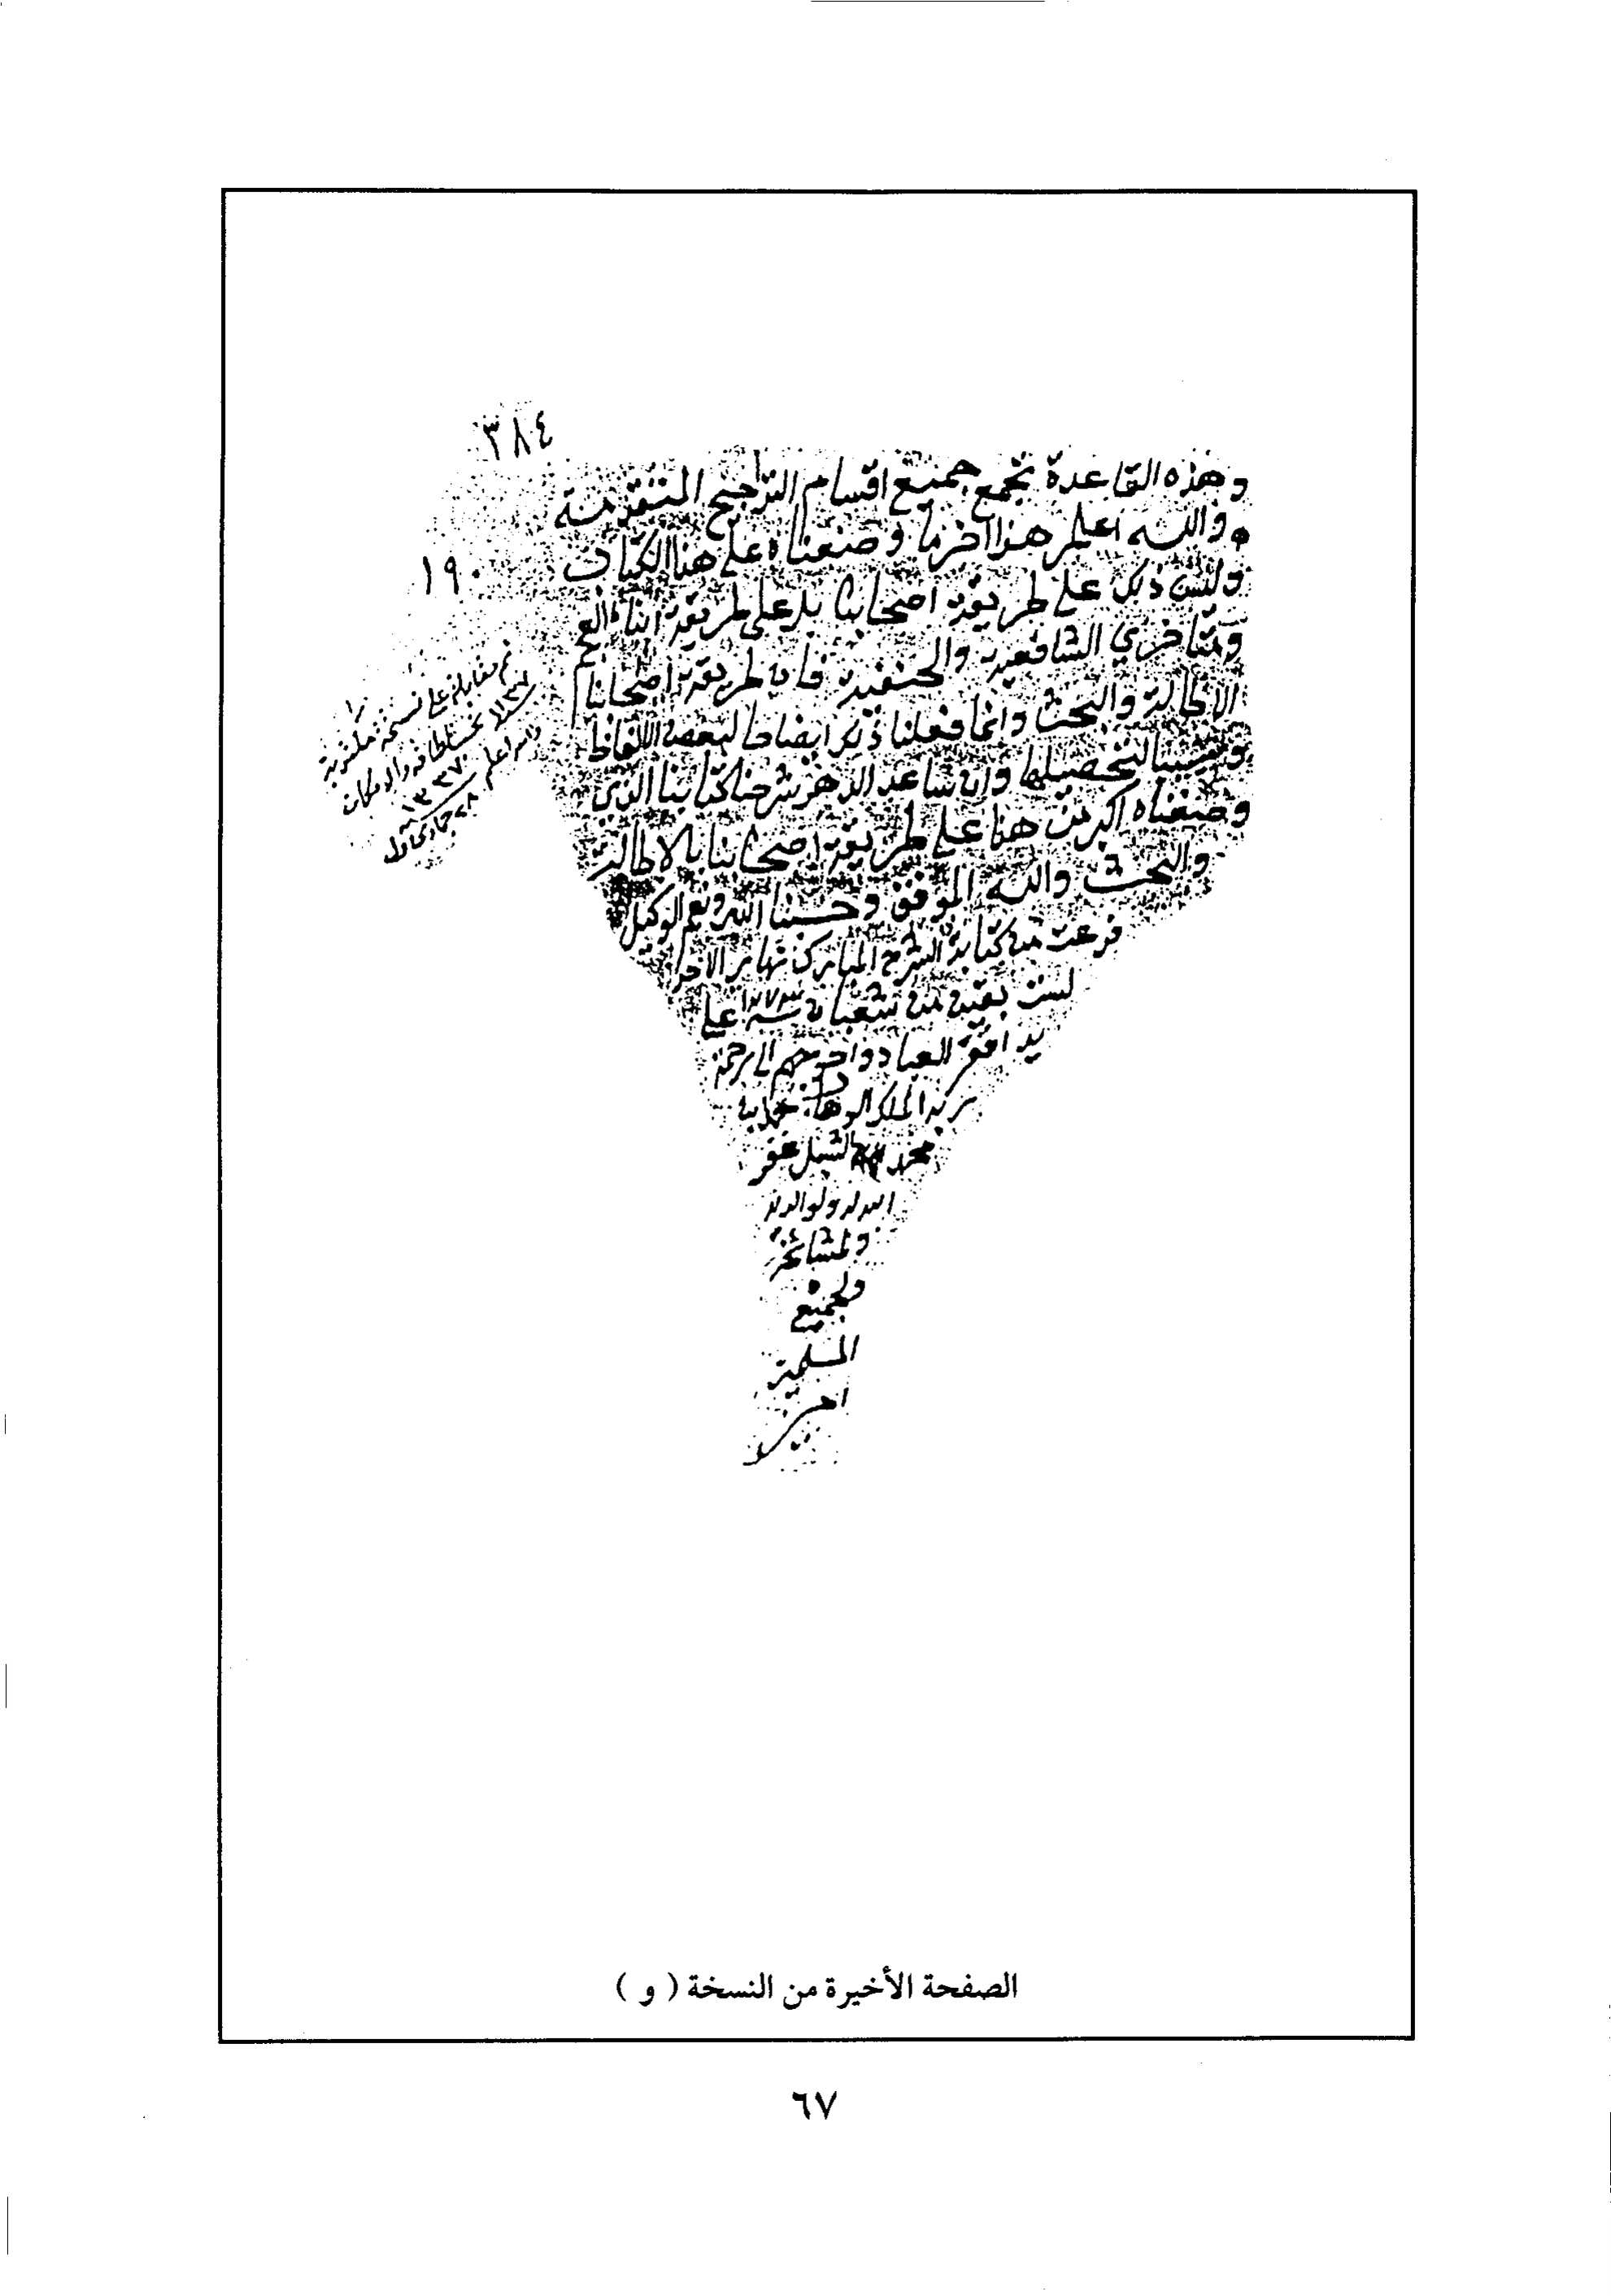 ٣٨٤
وهذه القاعدة تجمع جميع اقسام التراجيح المتقدمة
والله اعلم هذا اخر ما وضعناه على هذا الكتاب
١٩٠
وليس ذلك على طريقة اصحابنا بل على طريقة ابناء العجم
ومتاخري الشافعية والحنفية فان طريقة اصحابنا
الاطالة والبحث وانما فعلنا ذلك ايضاحا لبعض الالفاظ
لتحصيلها وان ساعد الدهر شرحنا كتابنا الذي
وضعناه اكبر من هذا على طريقة اصحابنا بالاطالة
والبحث والله الموفق وحسبنا الله ونعم الوكيل
فرغت من كتابة الشرح المبارك نهار الاحد
لست بقين من شعبان سنة على
يد افقر العباد واحوجهم الى رحمة
ربه الملك الوهاب
محمد الشبل غفر
الله له ولوالديه
ولمشائخه
ولجميع
المسلمين
امين
تم مقابلة على نسخة
بحسب الطاقة والامكان
والله اعلم
١٣٣٧
٢٨ جمادى اول
الصفحة الأخيرة من النسخة ( و )
٦٧